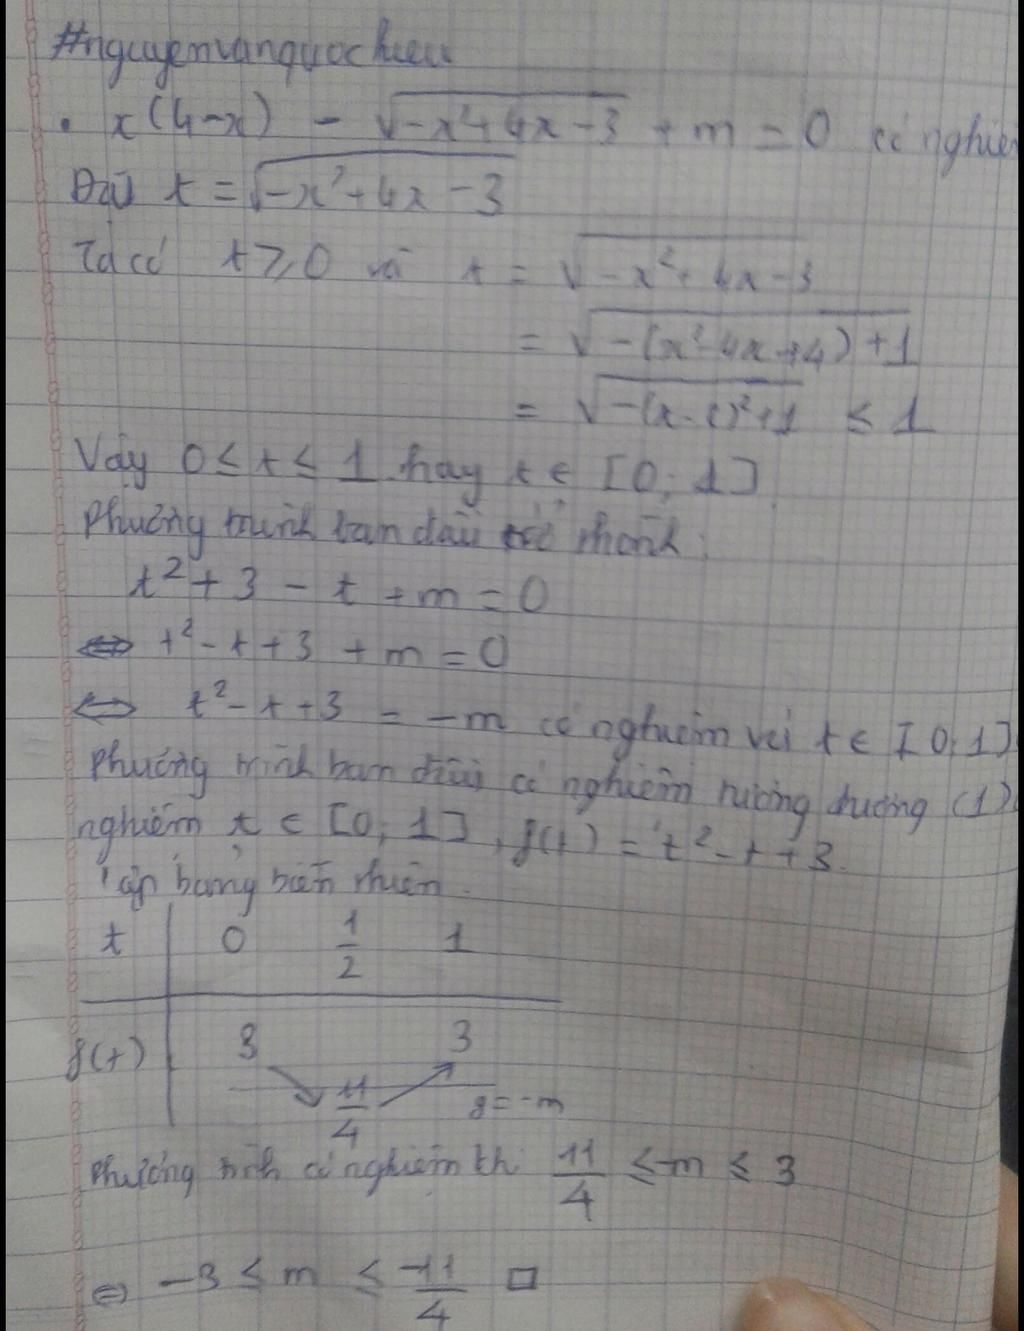 #nguyenvanquochieu
• x(4-x) - √(-x²+4x-3) + m = 0 có nghiệ
Đặt t = √(-x²+4x-3)
Ta có t ≥ 0 và t = √(-x²+4x-3)
= √(-(x²-4x+4)+1)
= √(-(x-2)²+1) ≤ 1
Vậy 0 ≤ t ≤ 1 hay t ∈ [0; 1]
Phương trình ban đầu trở thành:
t² + 3 - t + m = 0
⇔ t² - t + 3 + m = 0
⇔ t² - t + 3 = -m có nghiệm với t ∈ [0;1]
Phương trình ban đầu có nghiệm tương đương (1)
nghiệm t ∈ [0; 1], f(t) = t² - t + 3.
Lập bảng biến thiên.
t 0 1/2 1
f(t) 3 11/4 3
y = -m
Phương trình có nghiệm thì 11/4 ≤ -m ≤ 3
⇔ -3 ≤ m ≤ -11/4 □